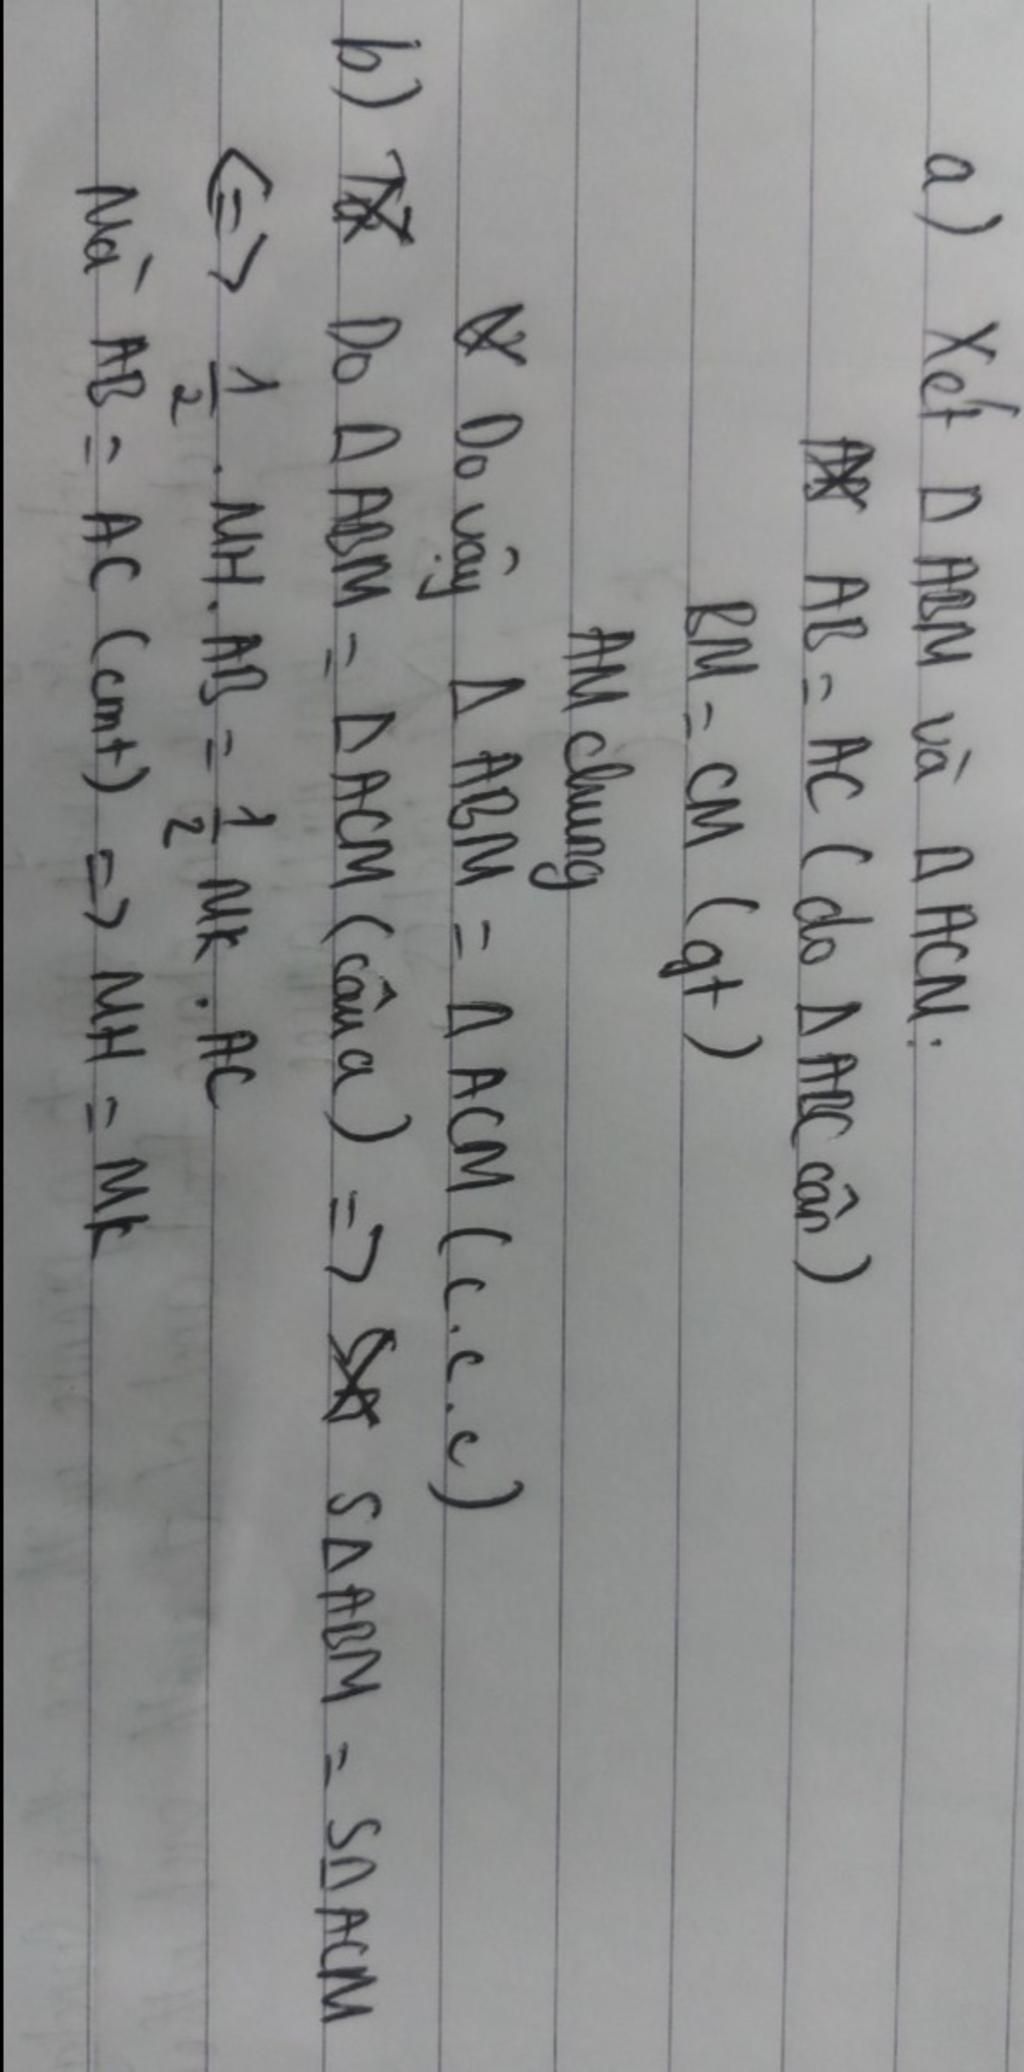 a) Xét Δ ABM và Δ ACM:
AB = AC (do Δ ABC cân)
BM = CM (gt)
AM chung
Do vậy Δ ABM = Δ ACM (c.c.c)
b) Do Δ ABM = Δ ACM (câu a) => SΔABM = SΔACM
<=> 1/2 . MH . AB = 1/2 MK . AC
Mà AB = AC (cmt) => MH = MK